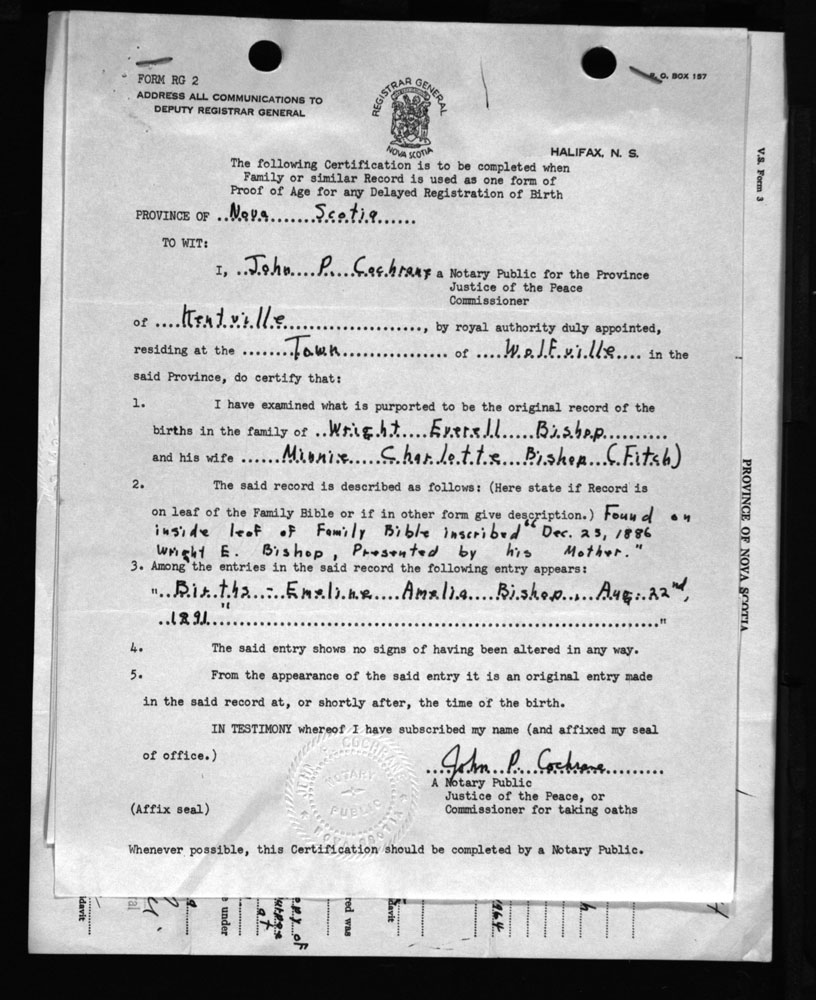 FORM RG 2
ADDRESS ALL COMMUNICATIONS TO
DEPUTY REGISTRAR GENERAL
REGISTRAR GENERAL
NOVA SCOTIA
P. O. BOX 157
HALIFAX, N. S.
The following Certification is to be completed when
Family or similar Record is used as one form of
Proof of Age for any Delayed Registration of Birth
PROVINCE OF ..Nova.......Scotia......
TO WIT:
I, ..John....P....Cochrane a Notary Public for the Province
Justice of the Peace
Commissioner
of ....Kentville......................, by royal authority duly appointed,
residing at the ........Town................ of ....Wolfville.... in the
said Province, do certify that:
1. I have examined what is purported to be the original record of the
births in the family of ..Wright....Everell.....Bishop..........
and his wife ......Minnie.....Charlotte...Bishop...(Fitch)
2. The said record is described as follows: (Here state if Record is
on leaf of the Family Bible or if in other form give description.) Found on
inside leaf of Family Bible inscribed "Dec. 25, 1886
Wright E. Bishop, Presented by his Mother."
3. Among the entries in the said record the following entry appears:
"..Births - Emeline....Amelia....Bishop... Aug. 22nd,
..1891"............................................................"
4. The said entry shows no signs of having been altered in any way.
5. From the appearance of the said entry it is an original entry made
in the said record at, or shortly after, the time of the birth.
IN TESTIMONY whereof I have subscribed my name (and affixed my seal
of office.)
...John..P...Cochrane.........
A Notary Public
Justice of the Peace, or
Commissioner for taking oaths
JOHN P. COCHRANE
NOTARY
PUBLIC
NOVA SCOTIA
(Affix seal)
Whenever possible, this Certification should be completed by a Notary Public.
V.S. Form 3
PROVINCE OF NOVA SCOTIA
idavit
e under
at
of
red was
davit
1964